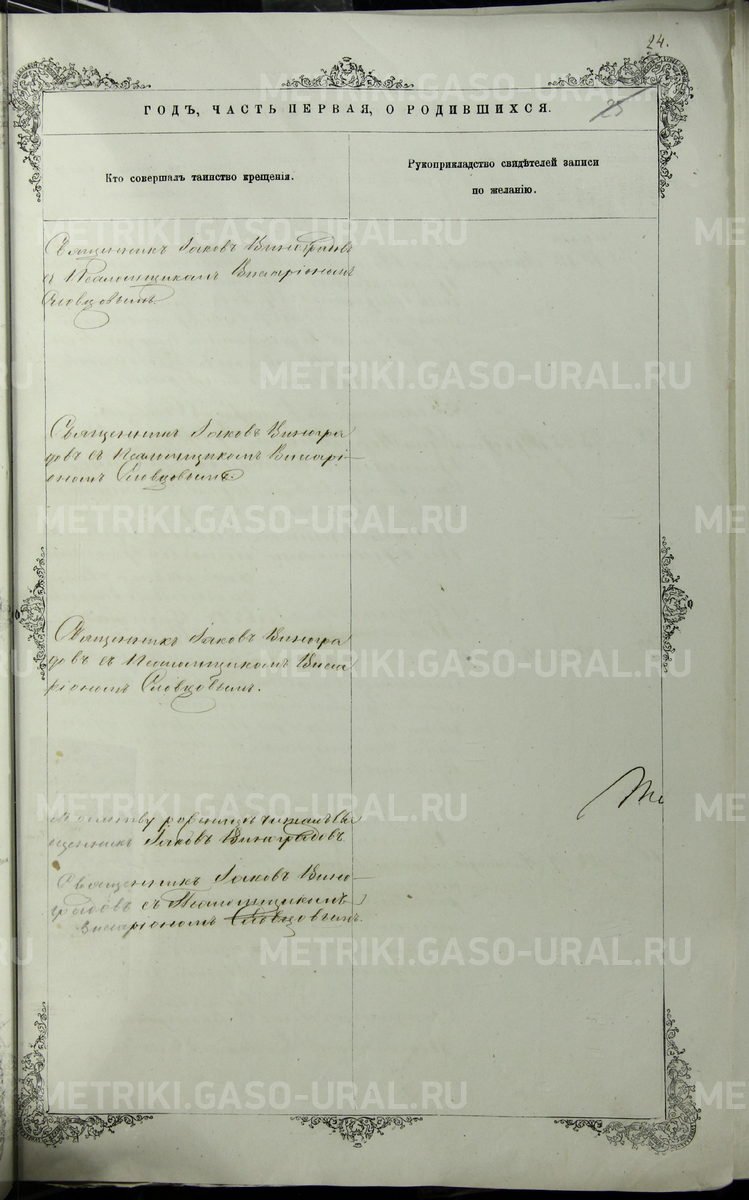 24.
25
ГОДЪ, ЧАСТЬ ПЕРВАЯ, О РОДИВШИХСЯ.
Кто совершалъ таинство крещенія.
Рукоприкладство свидѣтелей записи
по желанію.
Священникъ Іаковъ Виноградовъ
съ Псаломщикомъ Висаріономъ
Словцовымъ.
Священникъ Іаковъ Виногра
довъ съ Псаломщикомъ Висарі-
ономъ Словцовымъ.
Священникъ Іаковъ Виногра
довъ съ Псаломщикомъ Виса
ріономъ Словцовымъ.
Молитву родильн. читалъ Свя
щенникъ Іаковъ Виноградовъ.
Священникъ Іаковъ Вино-
градовъ съ Псаломщикомъ
Висаріономъ Словцовымъ.
METRIKI.GASO-URAL.RU